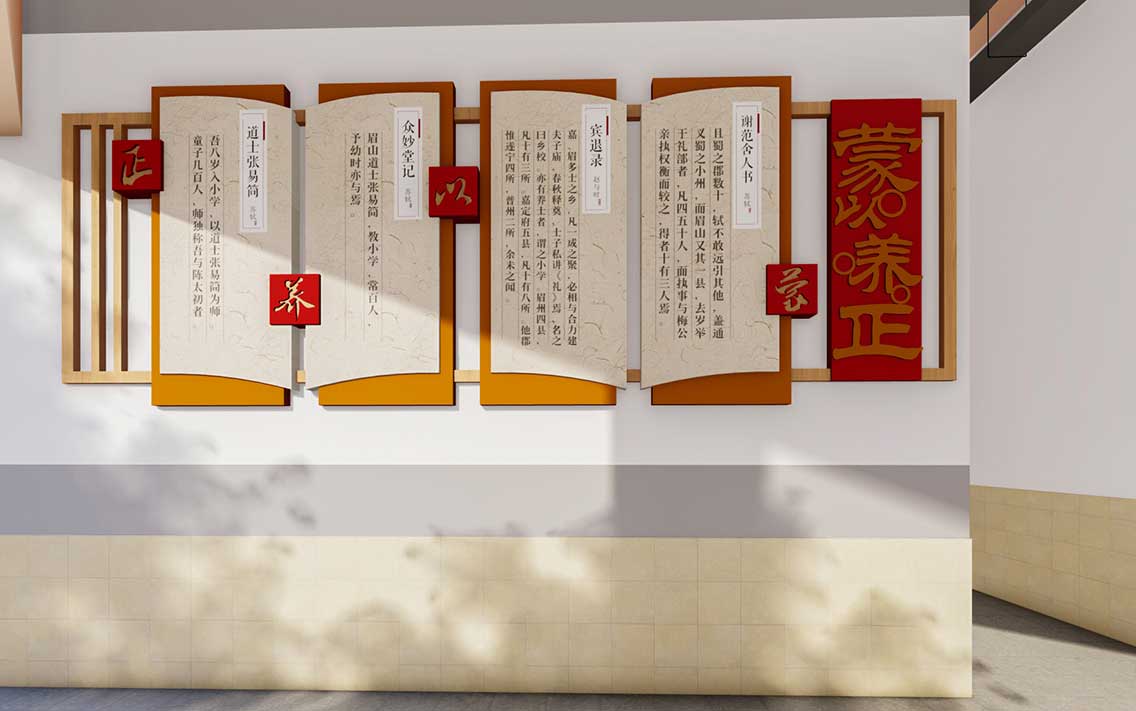 蒙以养正
蒙
谢范舍人书
苏轼
且蜀之郡数十，轼不敢远引其他，盖通
又蜀之小州，而眉山又其一县，去岁举
于礼部者，凡四五十人，而执事与梅公
亲执权衡而较之，得者十有三人焉。
宾退录
赵与时
嘉、眉多士之乡，凡一成之聚，必相与合力建
夫子庙，春秋释奠，士子私讲《礼》焉，名之
曰乡校。亦有养士者，谓之小学。眉州四县，
凡十有三所。嘉定府五县，凡十有八所。他郡
惟遂宁四所，普州二所，余未之闻。
以
众妙堂记
苏轼
眉山道士张易简，教小学，常百人，
予幼时亦与焉。
养
道士张易简
苏轼
吾八岁入小学，以道士张易简为师。
童子几百人，师独称吾与陈太初者。
正